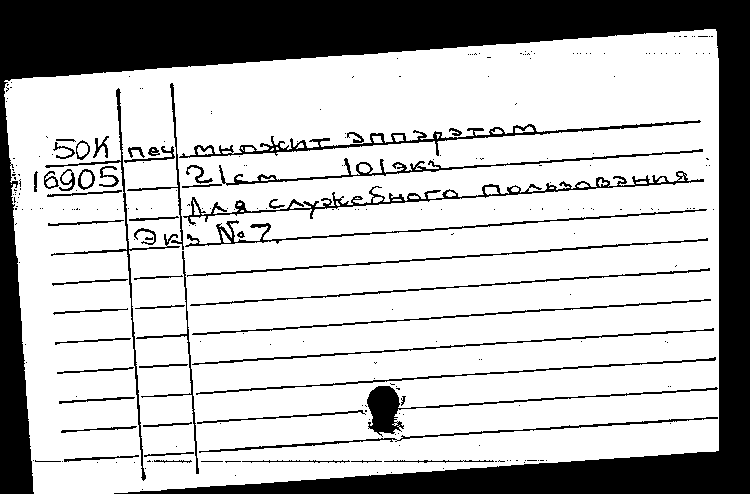 50К печ. множит аппаратом
16905 21см 101экз
Для служебного пользования
Экз №7.